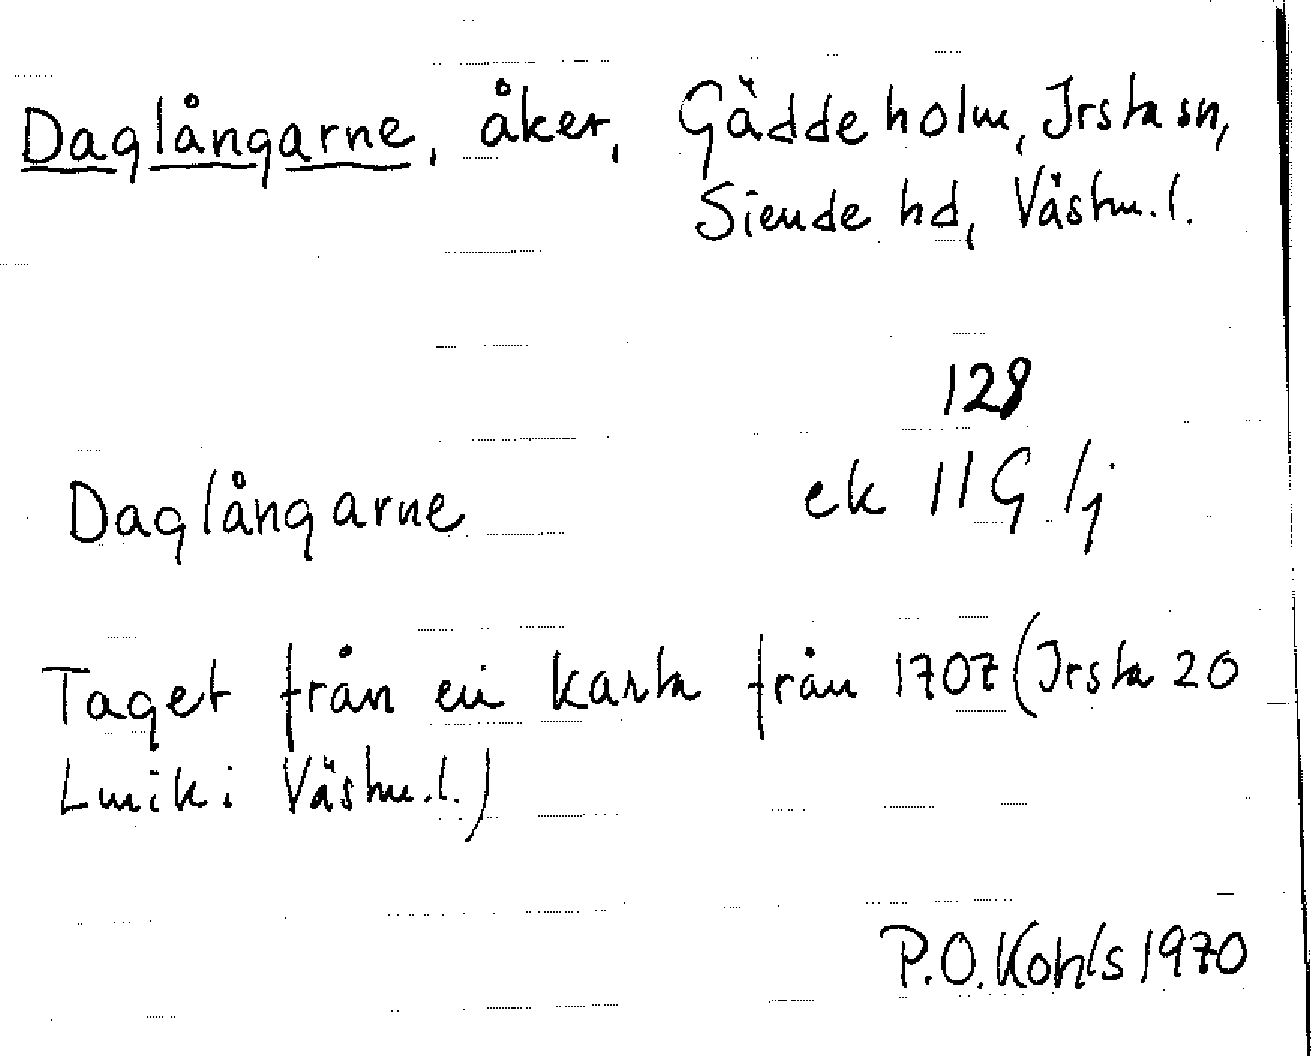 Daglångarne, åker, Gäddeholm, Irsta sn,
Siende hd, Västm.l.
128
Daglångarne ek 11G 1j
Taget från en karta från 1707 (Irsta 20
Lmik i Västm.l.)
P.O. Kohls 1970